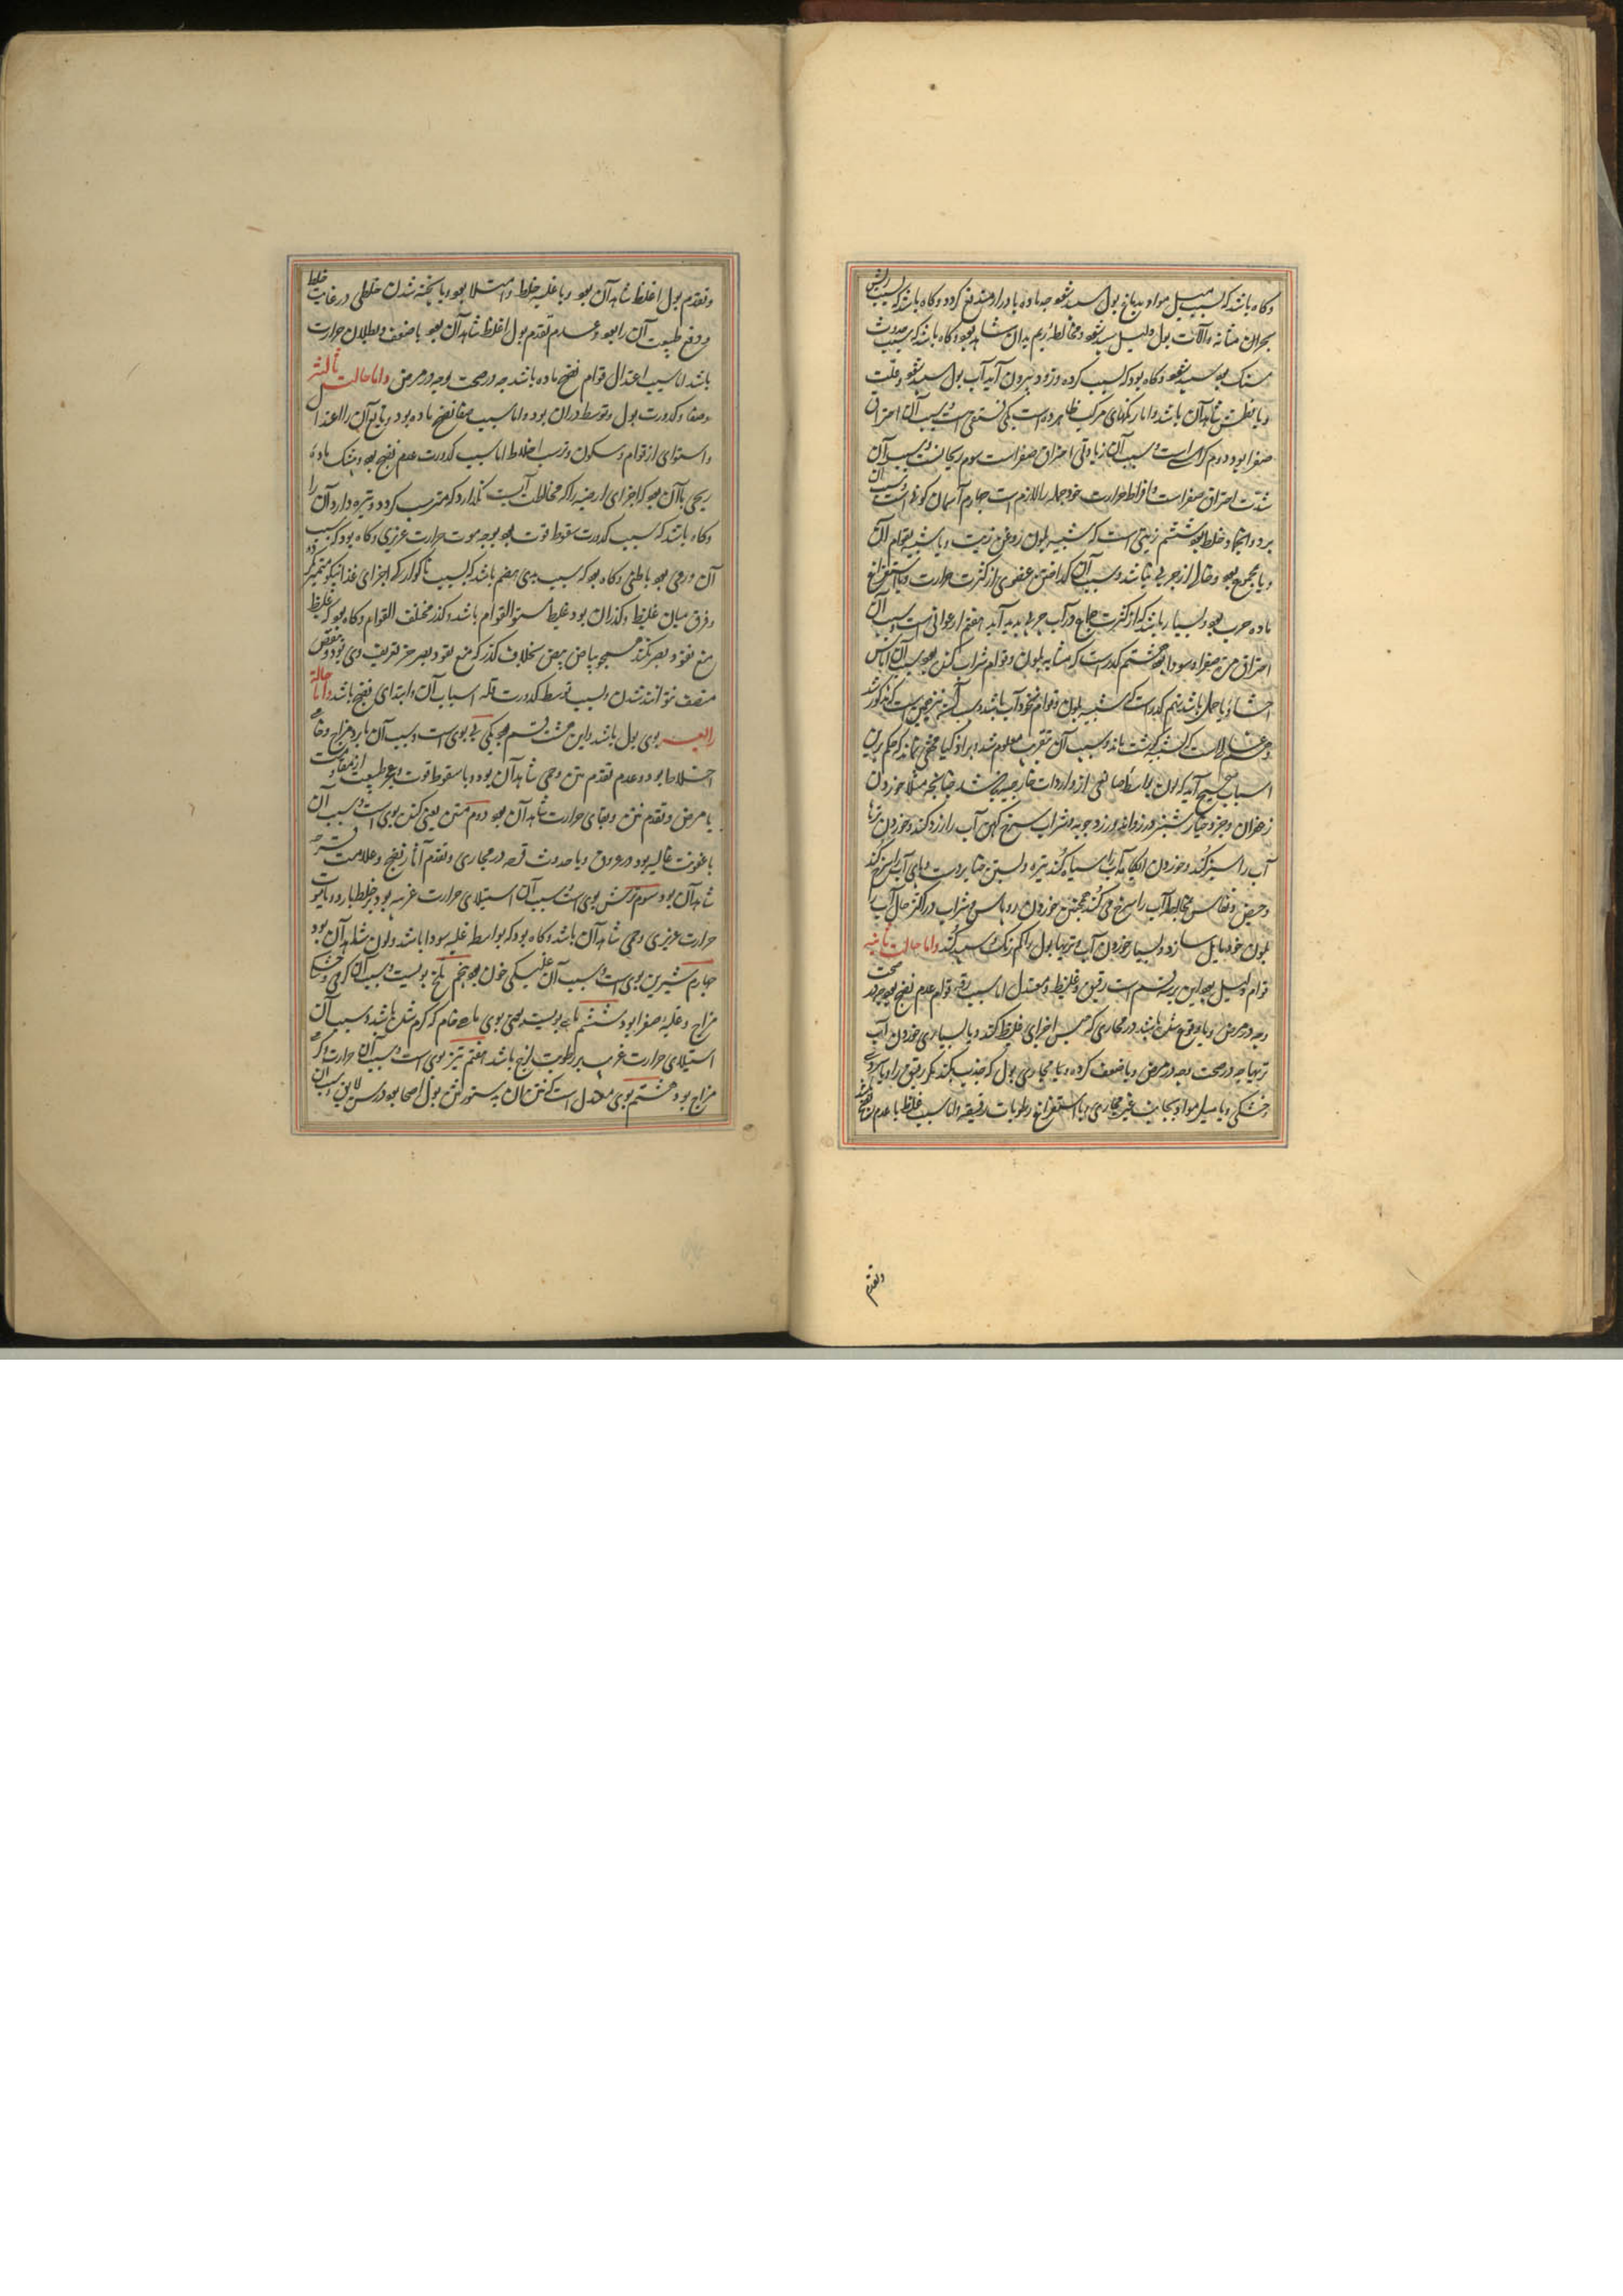 وکاه باشد که بسبب میل مواد بدماغ بول سپید شود چه ماده بادرار مندفع نکردد وکاه باشد که بسبب
بحران مثانه وآلات بول دلیل سپید شود ومخالطه ریم بدان شاهد بود وکاه باشد که بسبب حدوث
سنک بود سپید شود وکاه بود که بسبب کرده وزود بیرون آید آب بول سپید شود وقلت
ویا عطش شاهد آن باشد واما رنکهای مرکب ظاهر ده است یکی فستقی است وسبب آن احتراق
صفرا بود دوم کراثی است وسبب آن زیادتی احتراق صفراست سوم ریحانیست وسبب آن
شدت احتراق صفراست وافراط حرارت خود جمله را لازم است چهارم آسمان کونه است وسبب آن
برد وانجماد خلط بود ششم زیتی است که شبیه بلون روغن زیت ویا شبیه بقوام آن
ویا بمجموع بود وخالی از چربی نباشد وسبب آن کداختن عضوی از کثرت حرارت ویا استفراغ
ماده چرب بود وبسیار باشد که از کثرت جماع در آب چربی پدید آید هفتم ارغوانی است وسبب آن
احتراق مره صفرا وسودا بود هشتم کدر است که مشابه بلون وقوام شراب کهن بود وسبب آن آماس
احشا ویا حمل باشد نهم کدر است که شبیه بلون وقوام نخودآب باشد وسبب آن نیز همین است که مذکور شد
دهم غسالیست که شبیه بکوشت ماند وسبب آن بتقریب معلوم شد وبر اذکیا مخفی نماند که حکم برین
اسباب صحیح آید که لون بول واسطه صاحبی از واردات خارجیه نباشد چنانچه مثلا خوردن
زعفران وجزر وخیارشنبر ورزد آلو وزردچوبه وشراب سرخ کهن آب را زرد کند وخوردن ترها
آب را سبز کند وخوردن آبکامه آب را سیاه کند تیره وبستن حنا بر دست وپای آب را سرخ کند
وحیض ونفاس مخالطه آب را سرخ می کند همچنین خوردن روناس وشراب در اکثر حال آب را
بلون خود مایل سازد وبسیار خوردن آب وتریها بول را کم رنک وسپید کند واما حالت ثانیه
قوام دلیل بود این بر سه قسم است رقیق وغلیظ ومعتدل اما سبب رقت قوام عدم نضج بود چه در صحت
وچه در مرض ویا وقوع سده باشد در مجاری که حبس اجزای غلیظ کند ویا بسیاری خوردن آب
تریها چه در صحت وچه در مرض ویا ضعف کرده ویا مجاری بول که جذب نکند مکر رقیق را ویا سردی
وخشکی ویا میل مواد بجانب غیر مجاری ویا استفراغ رطوبات رقیقه واما سبب غلظ یا عدم نضج باشد
وتقدم
وتقدم بول اغلظ شاهد آن بود ویا غلبه خلط وامتلا بود ویا پخته شدن خلطی در غایت غلظ
ودفع طبیعت آن را بود وعدم تقدم بول اغلظ شاهد آن بود یا ضعف وبطلان حرارت
باشد اما سبب اعتدال قوام نضج ماده باشد چه در صحت وچه در مرض واما حالت ثالثه
وصفا وکدورت بول وتوسط در آن بود واما سبب صفا نضج ماده بود وتابع آن را اعتدا
واستوای از قوام وسکون وترسب اخلاط اما سبب کدورت عدم نضج بود وبیشک ماده
ریحی با آن بود که اجزای ارضیه را که مخالطت آبست نکذارد که مترسب کردد وتیره دارد آن را
وکاه باشد که سبب کدورت سقوط قوت بود بوجه موت حرارت غریزی وکاه بود که سبب
آن ورمی بود باطنی وکاه بود که سبب بدی هضم باشد که بسبب ناکوارد که اجزای غذا نیکو متمیز نکردد
وفرق میان غلیظ وکدر آن بود غلیظ مستوی القوام باشد وکدر مختلف القوام وکاه بود که غلیظ
منع نفوذ بصر نکند همچو بیاض بیض بخلاف کدر که منع نفوذ بصر جز تعریف وی بود وبعضی
متصف نتوانند شدن وسبب توسط کدورت قله اسباب آن وابتدای نضج باشد واما حالة
رابعه بوی بول باشد واین هشت قسم بود یکی بی بوی است وسبب آن یا برد مزاج وخامی
اخلاط بود وعدم تقدم نتن وحمی شاهد آن بود ویا سقوط قوت وعجز طبیعت از مقاومت
با مرض وتقدم نتن وبقای حرارت شاهد آن بود دوم منتن یعنی کنده بوی است وسبب آن
یا عفونت غالبه بود در عروق ویا حدوث قرحه در مجاری وتقدم آثار نضج وعلامت قرحه
شاهد آن بود سوم ترش بوی است وسبب آن استیلای حرارت غریبه بود بر خلط بارد ویا موت
حرارت غریزی وحمی شاهد آن باشد وکاه بود که بواسطه غلبه سودا باشد ولون شاهد آن بود
چهارم شیرین بوی است وسبب آن غلبکی خون بود پنجم تلخ بویست وسبب آن کرمی وخشکی
مزاج وغلبه صفرا بود ششم ماهی بویست یعنی بوی ماهی خام که کرم شده باشد وسبب آن
استیلای حرارت غریبه بر رطوبت لزج باشد هفتم تیز بوی است وسبب آن حرارت وکرمی
مزاج بود هشتم بوی معتدل است که نتن آن بدستور نتن بول اصحا بود در سن لایق وسبب آن